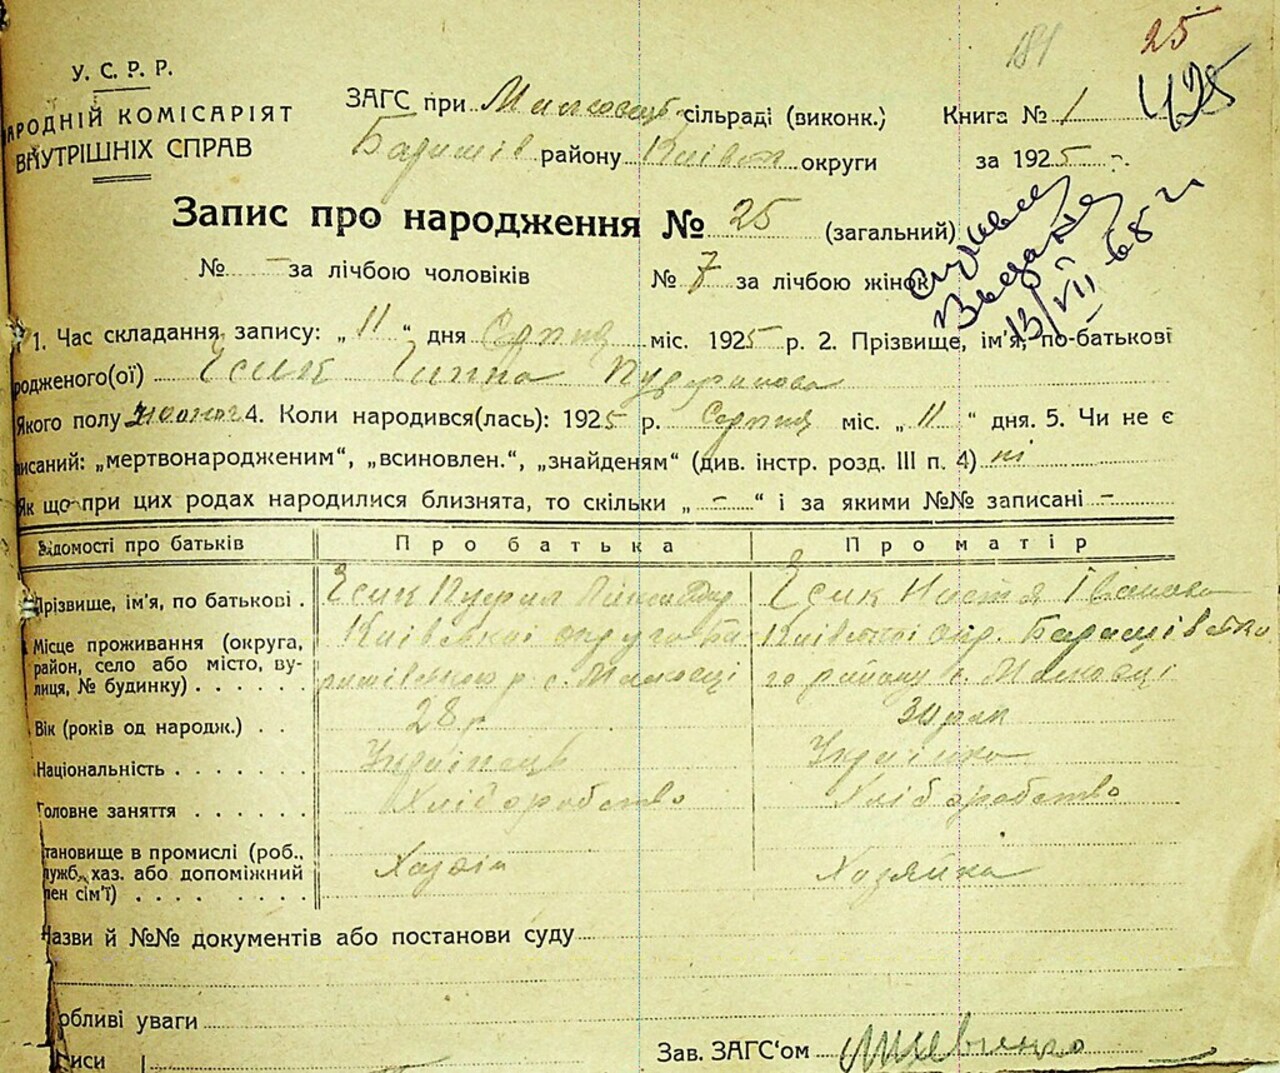 181 25
У. С. Р. Р.
АРОДНІЙ КОМІСАРІЯТ
ВНУТРІШНІХ СПРАВ
425
ЗАГС при сільраді (виконк.) Книга № 1
Баришів району Київськ округи за 1925
Запис про народження № 25 (загальний)
№ - за лічбою чоловіків № 7 за лічбою жінок
13/VII 68 г
1. Час складання запису: „ 11 “ дня Серпня міс. 1925 р. 2. Прізвище, ім'я, по-батькові
родженого(ої) Єсик
Якого полу жіноч 4. Коли народився(лась): 1925 р. Серпня міс. „ 11 “ дня. 5. Чи не є
писаний: „мертвонародженим“, „всиновлен.“, „знайденям“ (див. інстр. розд. III п. 4) ні
Як що при цих родах народилися близнята, то скільки „ - “ і за якими №№ записані -
Відомості про батьків Про батька Про матір
Прізвище, ім'я, по батькові . Єсик Єсик Настя Іванова
Місце проживання (округа, район, село або місто, вулиця, № будинку) . . . . . . Київської округи Ба Київської окр. Баришівсько
ришівського р. с. го району с.
Вік (років од народж.) . . 28 р 30 рок
Національність . . . . . . . Українець Українка
Головне заняття . . . . . . Хліборобство Хліборобство
тановище в промислі (роб.,
лужб., хаз. або допоміжний
лен сім'ї) . . . . . . . . . Хазяїн Хозяйка
Назви й №№ документів або постанови суду
обливі уваги
писи Зав. ЗАГС'ом